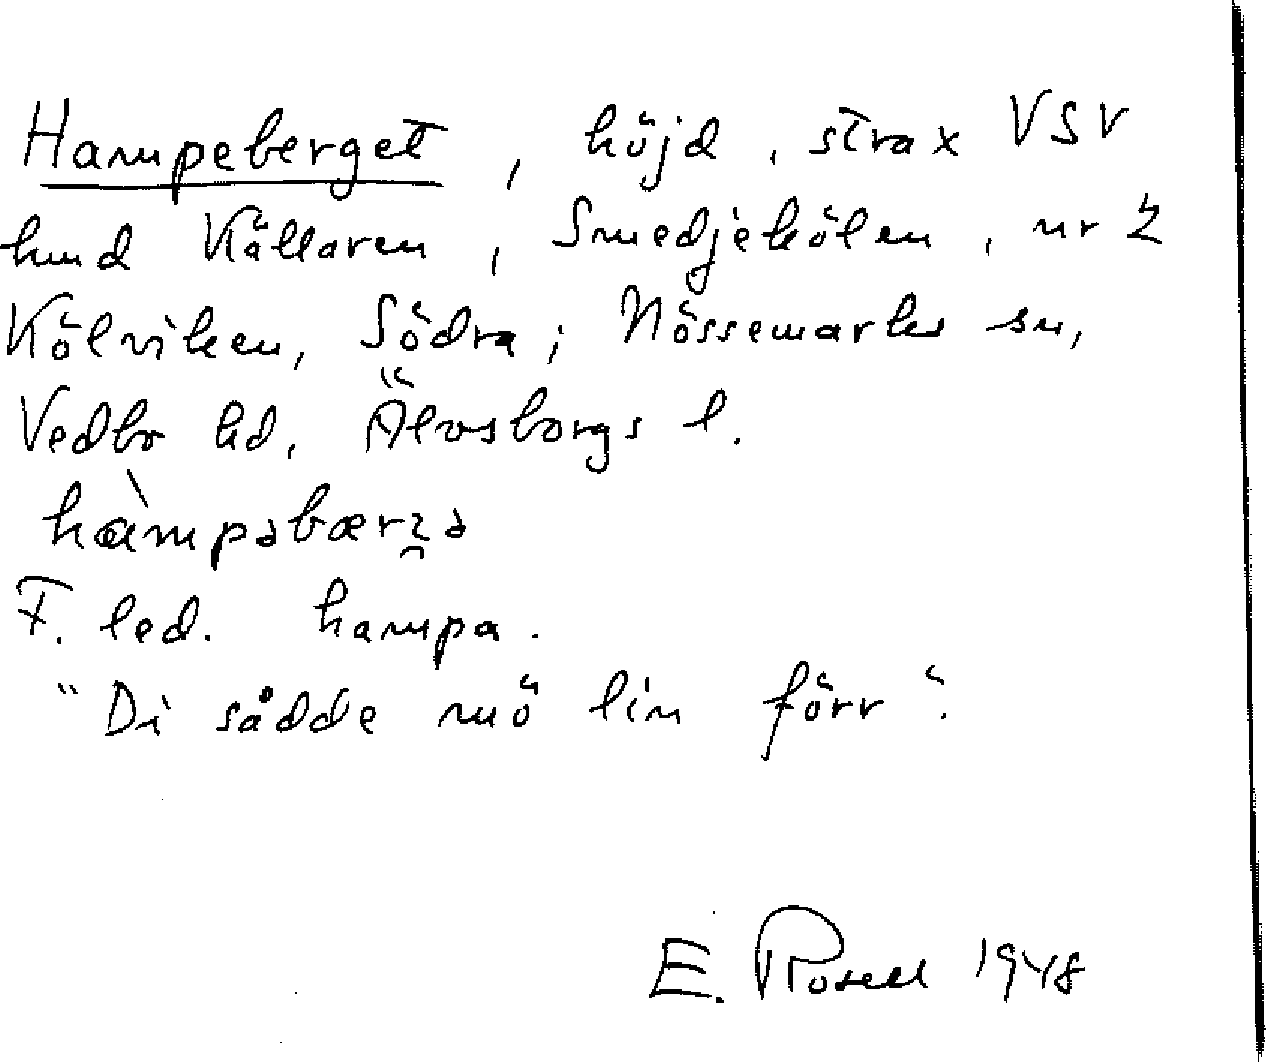 Hampeberget, höjd, strax VSV
hmd Källaren, Smedjekölen, nr 2
Kölviken, Södra; Nössemarks sn,
Vedbo hd, Älvsborgs l.
F. led. hampa.
"Di sådde mö lin förr".
E. Rosell 1948